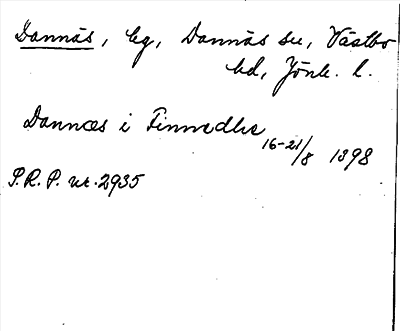 Dannäs, by, Dannäs sn, Västbo
hd, Jönk. l.
Dannæs i Finnvedhe
16-21/8 1398
S.R.P. nr. 2935